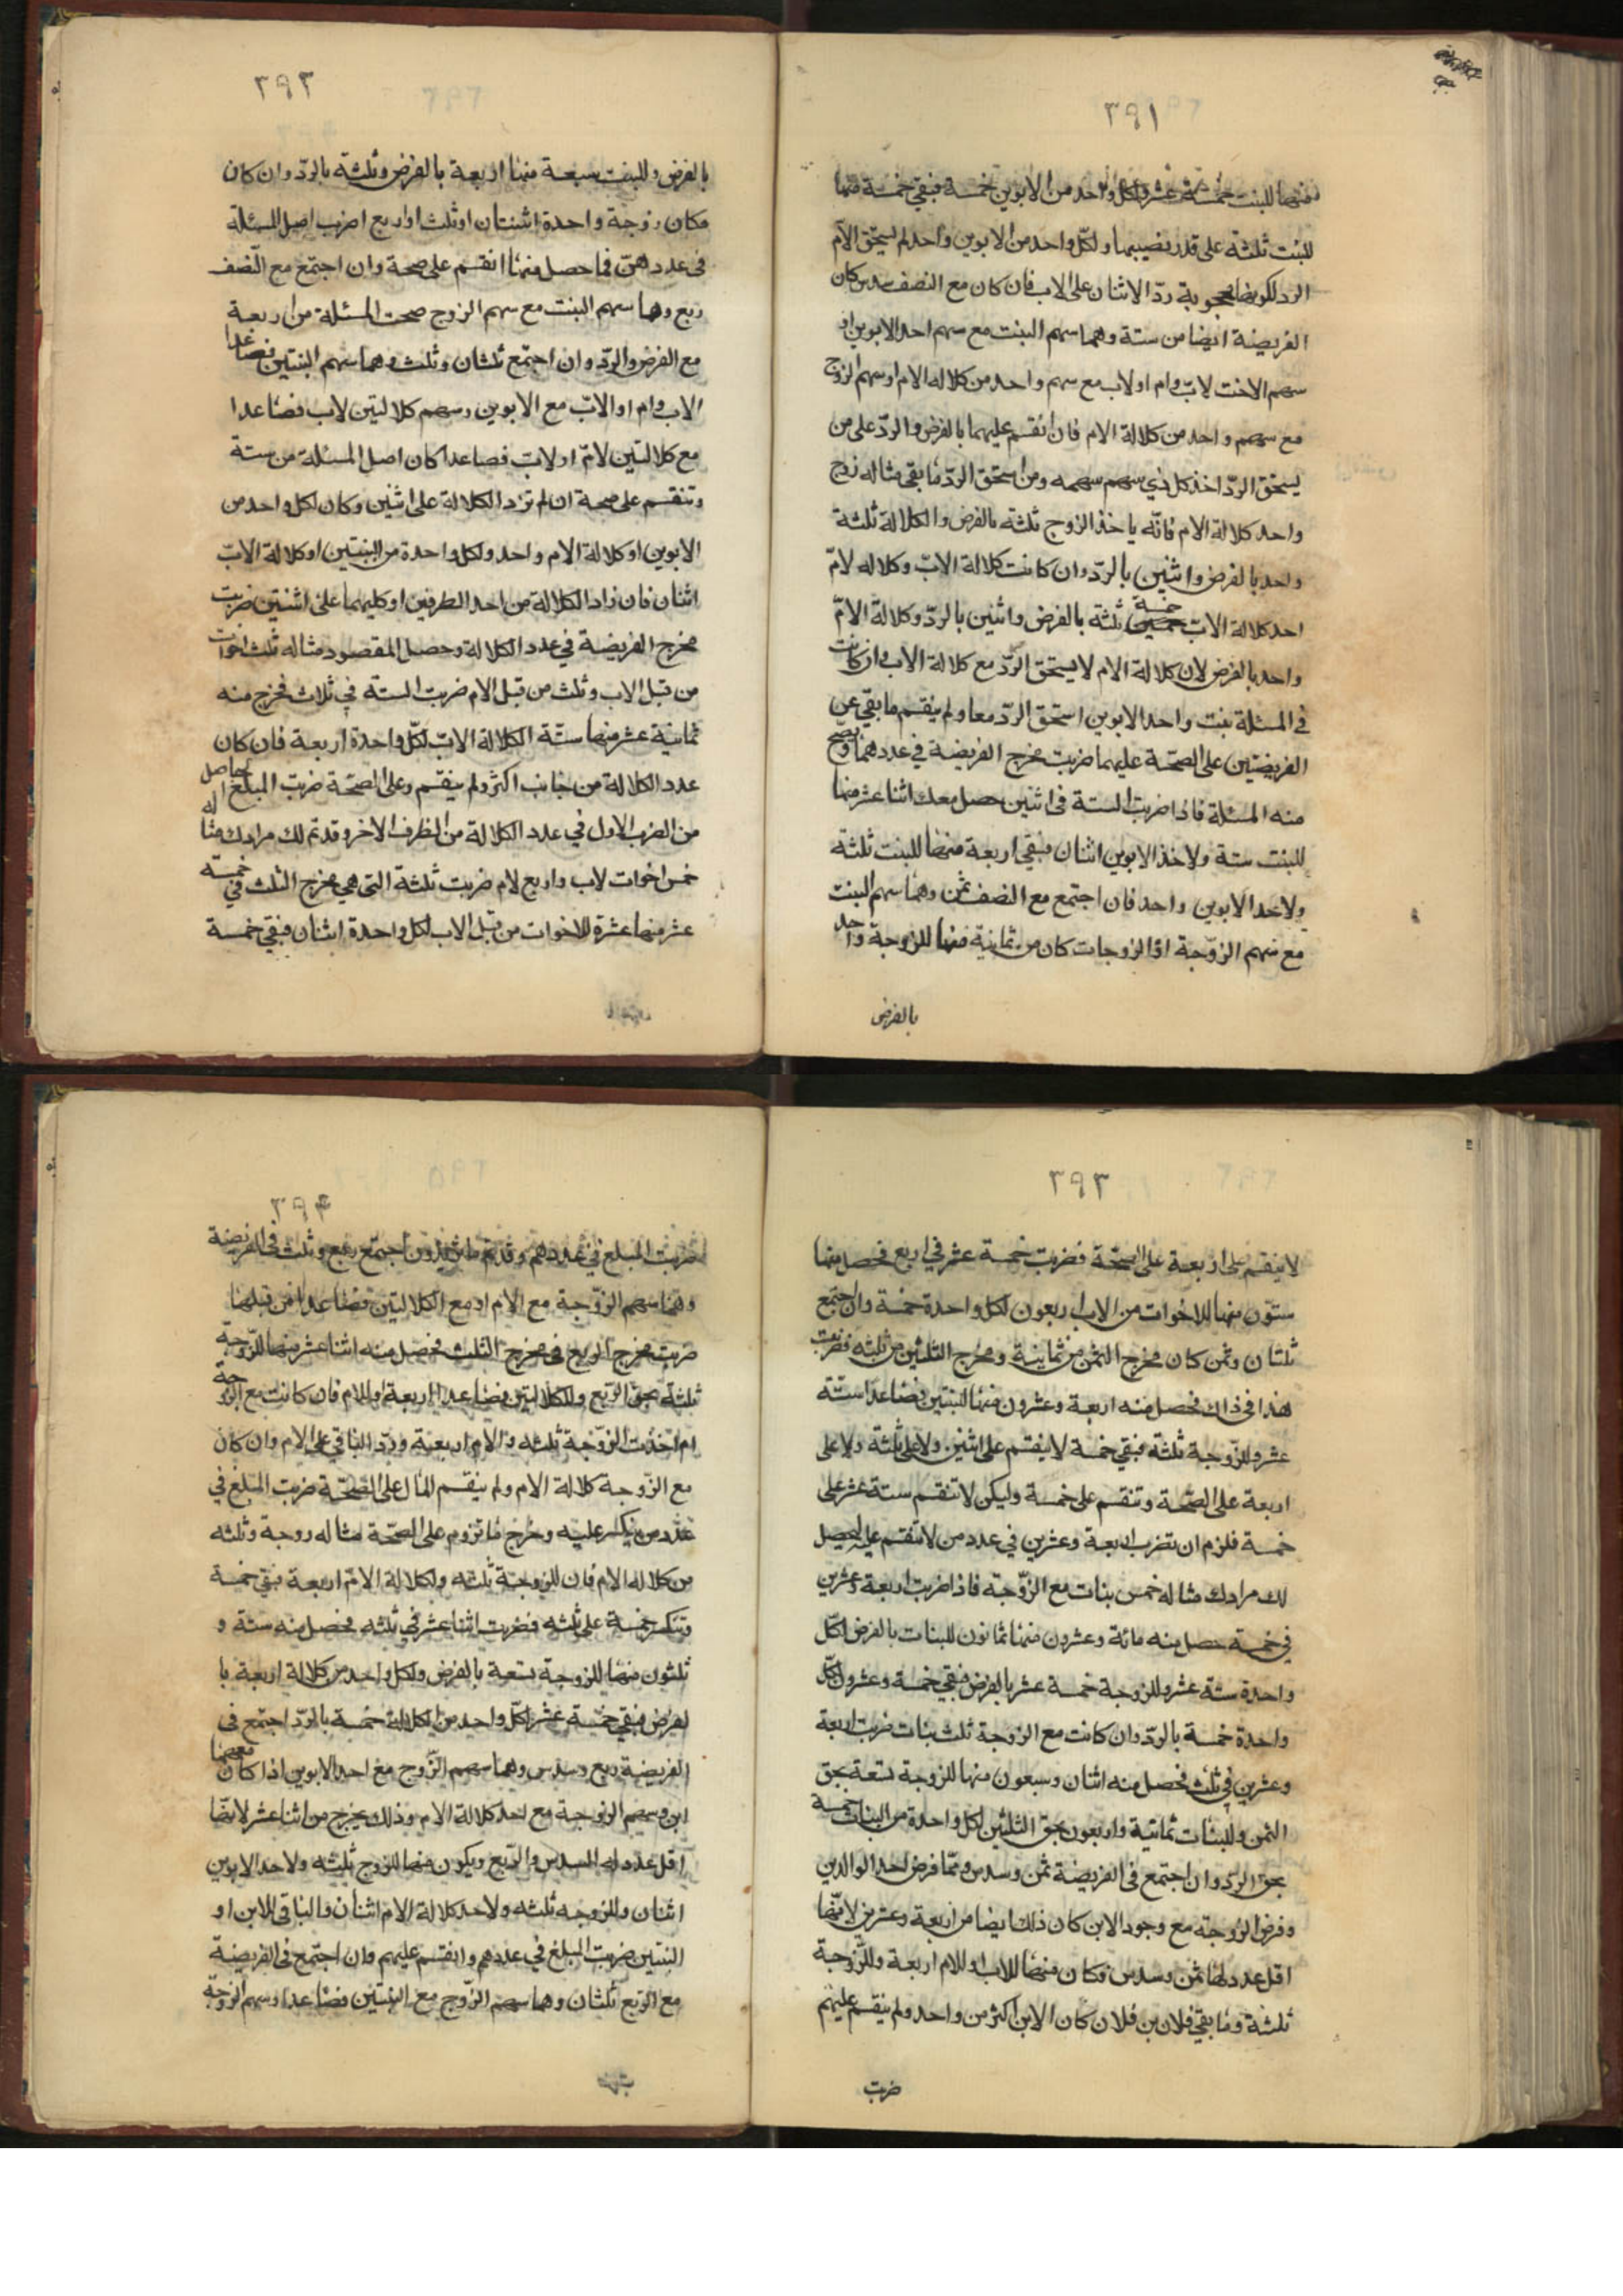 ٣٩١
فمنها للبنت خمسة عشر ولكل واحد من الابوين خمسة فبقي خمسة منها
للبنت ثلثة على قدر نصيبهما ولكل واحد من الابوين واحد لم يستحق الام
الرد لكونها محجوبة ردّ الاثنان على الاب فان كان مع النصف سدس كان
الفريضة ايضا من ستة وهما سهم البنت مع سهم احد الابوين او
سهم الاخت لاب وام او لاب مع سهم واحد من كلاله الام او سهم الزوج
مع سهم واحد من كلالة الام فان انقسم عليهما بالفرض والردّ على من
يستحق الردّ اخذ كل ذي سهم سهمه ومن استحق الردّ ما بقى مثاله زوج
واحد كلالة الام فانّه ياخذ الزوج ثلثة بالفرض والكلالة ثلثة
واحد بالفرض واثنين بالردّ وان كانت كلالة الابّ وكلاله لامّ
احد كلالة الابّ خمسة ثلثة بالفرض واثنين بالردّ وكلالة الامّ
واحد بالفرض لان كلالة الام لا يستحق الردّ مع كلالة الاب وان كانت
في المسئلة بنت واحد الابوين استحق الردّ معا ولم ينقسم ما بقي عن
الفريضتين على الصحّة عليهما ضربت مخرج الفريضة في عددهما وتصح
منه المسئلة فاذا ضربت الستة فى اثنين حصل معك اثنا عشر منها
للبنت ستة ولاحد الابوين اثنان فبقي اربعة منها للبنت ثلثة
ولاحد الابوين واحد فان اجتمع مع النصف ثمن وهما سهم البنت
مع سهم الزوّجة او الزوجات كان من ثمانية منها للزوجة واحد
بالفرض
٣٩٢
بالفرض وللبنت سبعة منها اربعة بالفرض وثلثة بالردّ وان كان
مكان زوجة واحدة اثنتان او ثلث او اربع اضرب اصل المسئلة
فى عددهنّ فما حصل منها انقسم على صحة وان اجتمع مع النّصف
ربع وهما سهم البنت مع سهم الزوج صحت المسئلة من اربعة
مع الفرض والردّ وان اجتمع ثلثان وثلث وهما سهم البنتين فصاعدا
الاب وام او الابّ مع الابوين وسهم كلالتين لاب فصاعدا
مع كلالتين لامّ او لاب فصاعدا كان اصل المسئلة من ستة
وتنقسم على صحة ان لم تزد الكلالة على اثنين وكان لكل واحد من
الابوين او كلالة الام واحد ولكل واحدة من البنتين او كلالة الابّ
اثنان فان زاد الكلالة من احد الطرفين او كليهما على اثنتين ضربت
مخرج الفريضة في عدد الكلالة وحصل المقصود مثاله ثلث اخوات
من قبل الاب وثلث من قبل الام ضربت الستة في ثلاث فخرج منه
ثمانية عشر منها ستّة الكلالة الابّ لكل واحدة اربعة فان كان
عدد الكلالة من جانب اكثر ولم ينقسم وعلى الصحّة ضربت المبلغ الحاصل
من الضرب الاول في عدد الكلالة من الطرف الاخر وقد تم لك مرادك مثاله
خمس اخوات لاب واربع لام ضربت ثلثة التى هي مخرج الثلث في خمسة
عشر منها عشرة للاخوات من قبل الاب لكل واحدة اثنان فبقي خمسة
٣٩٣
لا ينقسم على اربعة على الصحّة فضربت خمسة عشر في اربع فحصل منها
ستّون منها للاخوات من الاب اربعون لكل واحدة خمسة وان اجتمع
ثلثان وثمن كان مخرج الثمن من ثمانية ومخرج الثلثين من ثلثه فضربت
هذا فى ذاك فحصل منه اربعة وعشرون منها للبنتين فصاعدا ستّة
عشر وللزّوجة ثلثة فبقي خمسة لا ينقسم على اثنين ولا على ثلثة ولا على
اربعة على الصّحة وتنقسم على خمسة وليكن لا تنقسم ستة عشر على
خمسة فلزم ان تضرب اربعة وعشرين في عدد من لا تنقسم عليه ليحصل
لك مرادك مثاله خمس بنات مع الزوّجة فاذا ضربت اربعة وعشرين
في خمسة حصل منه مائة وعشرون منها ثمانون للبنات بالفرض لكلّ
واحدة ستة عشر وللزوجة خمسة عشر بالفرض فبقي خمسة وعشرون لكلّ
واحدة خمسة بالردّ وان كانت مع الزوجة ثلث بنات ضربت اربعة
وعشرين في ثلث فحصل منه اثنان وسبعون منها للزوجة تسعة بحق
الثمن وللبنات ثمانية واربعون بحق الثلثين لكل واحدة من البنات خمسة
بحق الردّ وان اجتمع فى الفريضة ثمن وسدس وهما فرض احد الوالدين
وفرض الزوجة مع وجود الابن كان ذلك ايضا من اربعة وعشرين لانّها
اقل عدد لها ثمن وسدس فكان منها للاب او للام اربعة وللزّوجة
ثلثة وما بقي فلابن فلان كان الابن اكثر من واحد ولم ينقسم عليهم
ضربت
٣٩٤
ضربت المبلغ في عددهم وقد تم ما تريد وان اجتمع ربع وثلث فى الفريضة
وهما سهم الزوّجة مع الام او مع الكلالتين فصاعدا من قبلها
ضربت مخرج الربع فى مخرج الثلث فحصل منه اثنا عشر منها للزّوجة
ثلثة بحق الربع وللكلالتين فصاعدا اربعة او للام فان كانت مع الزوجة
ام اخذت الزوّجة ثلثه والام اربعة وردّ الباقي على الام وان كان
مع الزوّجة كلالة الام ولم ينقسم المال على الصحّة ضربت المبلغ في
عدد من ينكسر عليه وخرج ما تروم على الصحّة مثاله زوجة وثلثه
من كلاله الام فان للزوجة ثلثه ولكلالة الامّ اربعة فبقي خمسة
وتنكسر خمسة على ثلثه فضربت اثنا عشر في ثلثه فحصل منه ستة و
ثلثون منها للزوجة تسعة بالفرض ولكل واحد من كلالة اربعة با
لفرض فبقي خمسة عشر لكلّ واحد من الكلالة خمسة بالردّ اجتمع فى
الفريضة ربع وسدس وهما سهم الزّوج مع احد الابوين اذا كان معهما
ابن وسهم الزوجة مع احد كلالة الام وذلك يخرج من اثنا عشر لانها
اقل عدد له السدس والربع ويكون منها للزوج ثلثه ولاحد الابوين
اثنان وللزوجه ثلثه ولاحد كلالة الام اثنان والباقى للابن او
البنتين ضربت المبلغ في عددهم وانقسم عليهم وان اجتمع فى الفريضة
مع الربع ثلثان وهما سهم الزوّج مع البنتين فصاعدا وسهم الزوجة